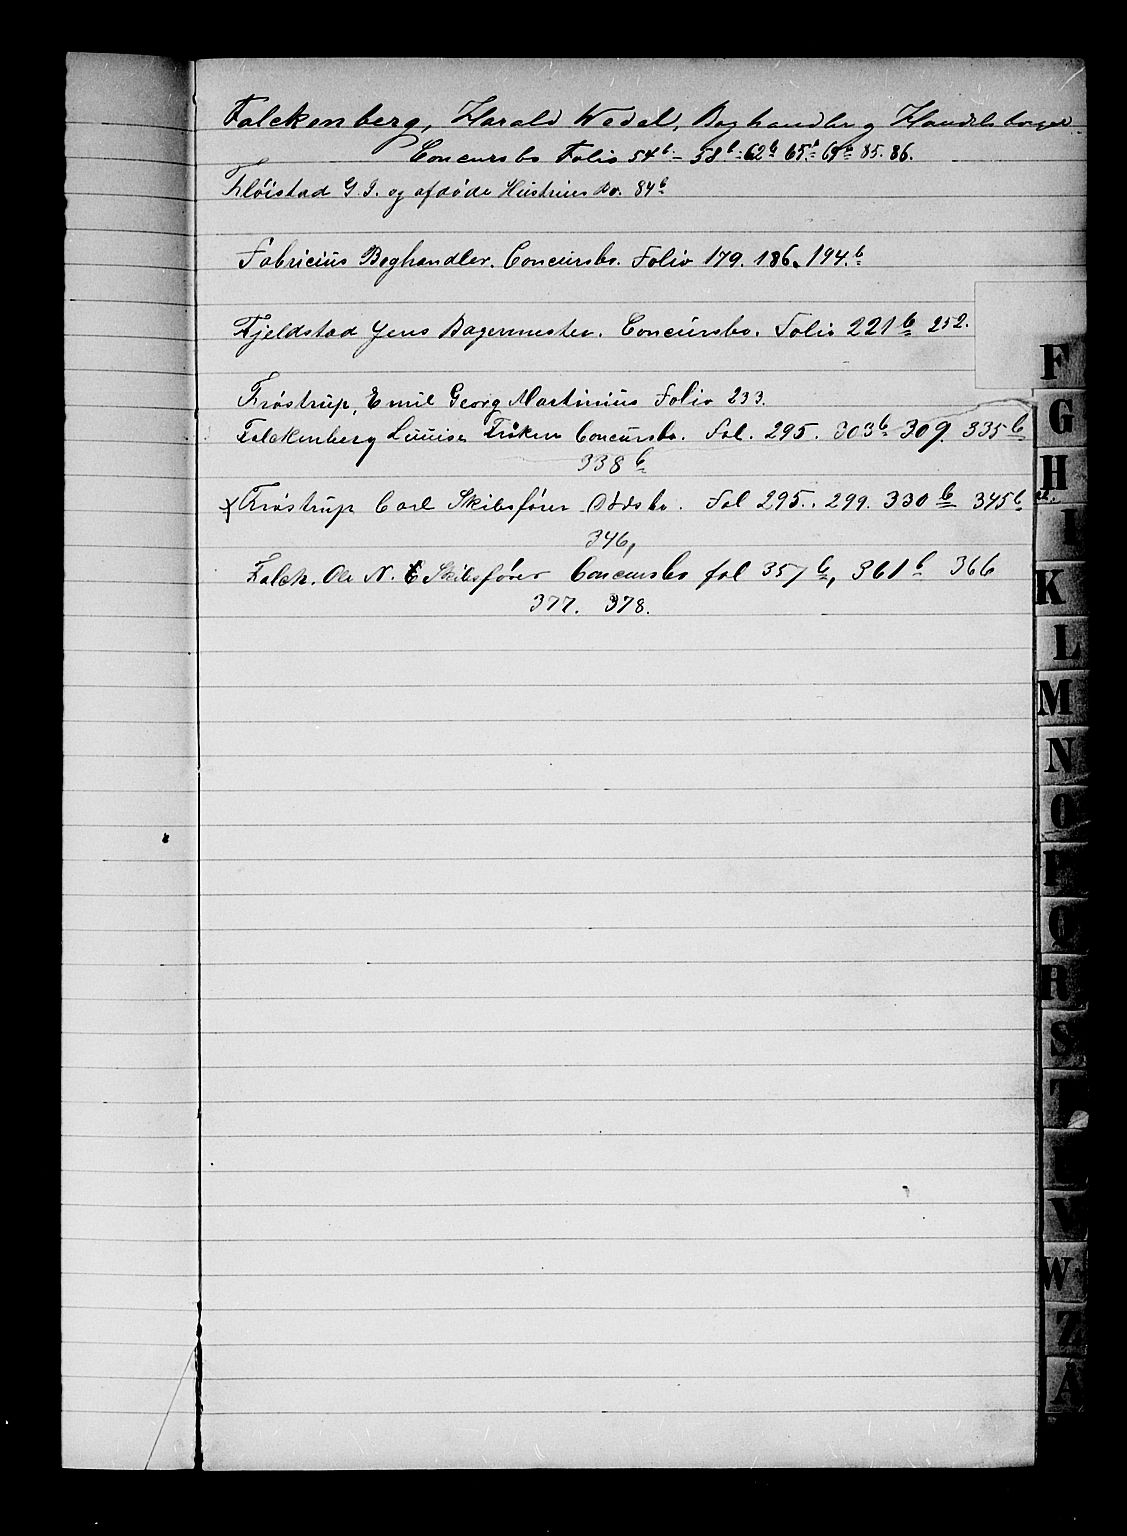 Falckenberg, Harald Wedel, Boghandler og Handelsborger
Concursbo Folio 54b - 58b - 62b 65b 69b 85. 86.
Fløistad G. J. og afdøde Hustrues Bo. 84b
Fabricius Boghandler. Concursbo. Folio 179. 186. 194.b
Fjeldstad Jens Bagermester. Concursbo. Folio 221b 252.
Frøstrup, Emil Georg Martinius Folio 233.
Falckenberg Louise Frøken Concursbo. Fol. 295. 303b 309. 335b
338b
Frøstrup Carl Skibsfører Dødsbo. Fol 295. 299. 330b 345b
346,
Falck. Ole N. Skibsfører Concursbo fol 357b, 361b 366
377. 378.
F
G
H
I
K
L
M
N
O
P
Q
R
S
T
V
W
Z